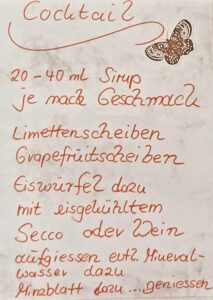 Cocktail
20 - 40 ml Sirup
je nach Geschmack
Limettenscheiben
Grapefruitscheiben
Eiswürfel dazu
mit eisgekühltem
Secco oder Wein
aufgiessen evtl. Mineral-
wasser dazu
Minzblatt dazu ... geniessen